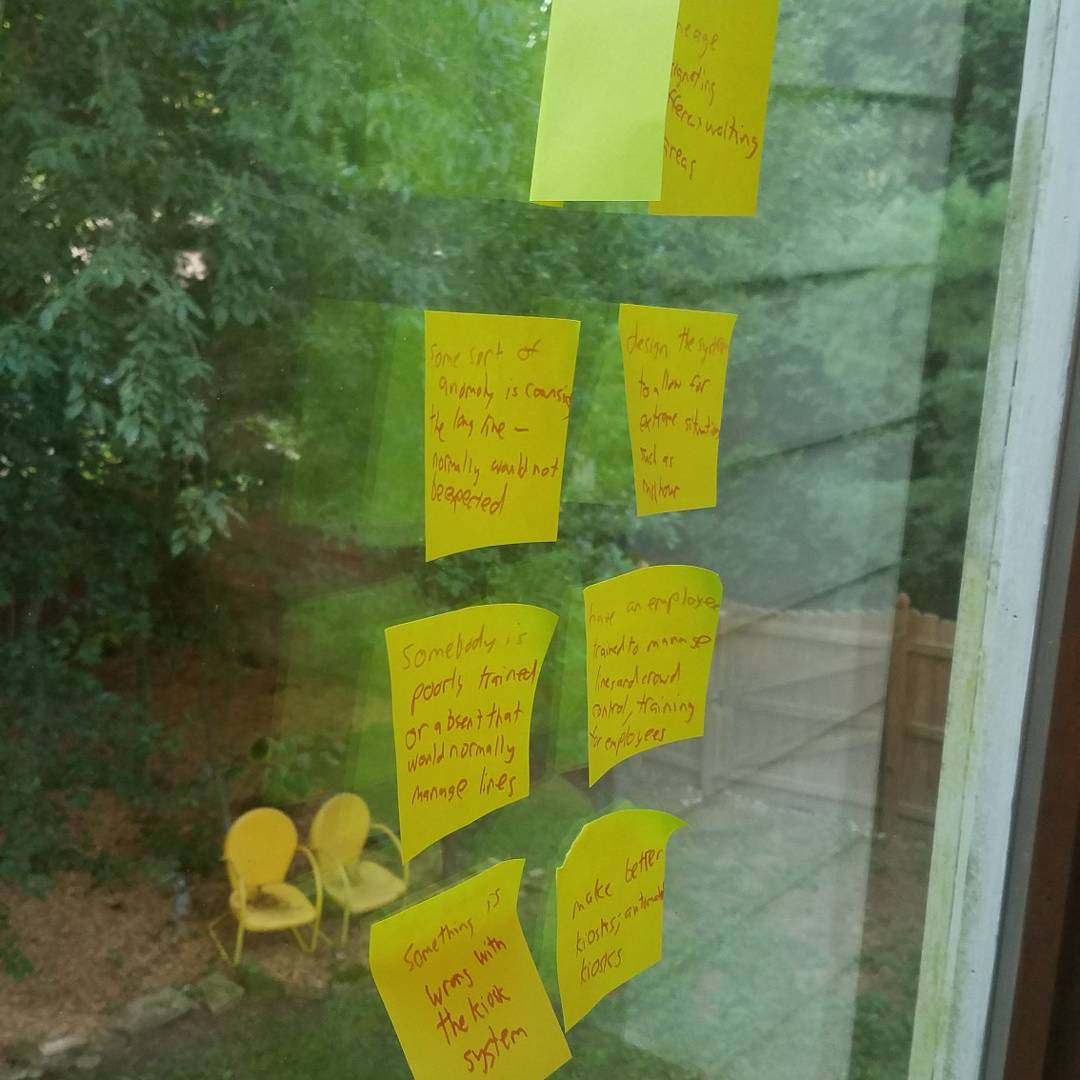 waiting
some sort of
anomoly is
the long line —
normally would not
be expected
design the system
to allow for
extreme
such as
Somebody is
poorly trained
or absent that
would normally
manage lines
have an employee
trained to manage
lines and crowd
control, training
for employees
Something is
wrong with
the kiosk
system
make better
kiosks;
kiosks